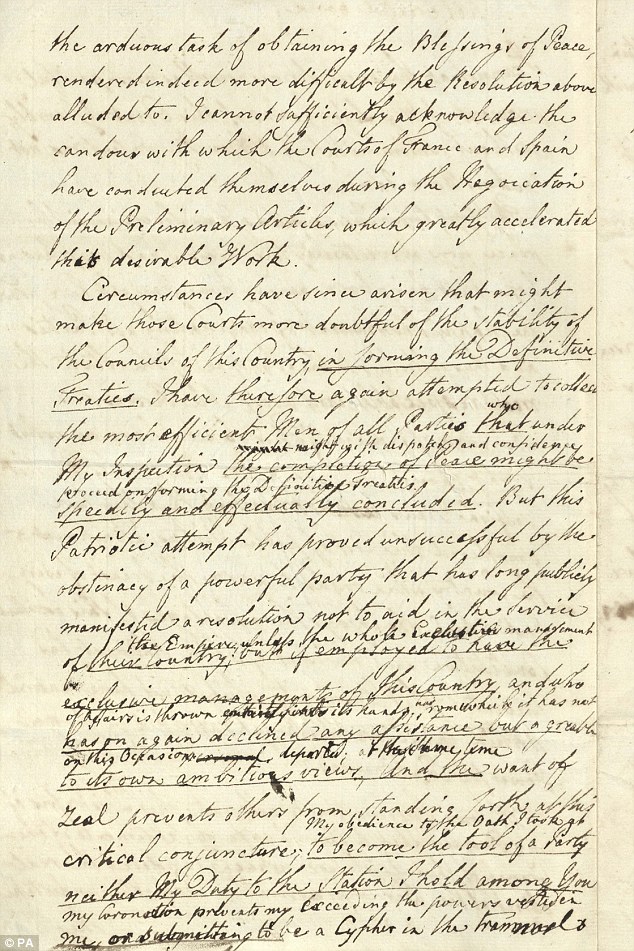 the arduous task of obtaining the Blessings of Peace,
rendered indeed more difficult by the Resolution above
alluded to. I cannot sufficiently acknowledge the
candour with which the Courts of France and Spain
have conducted themselves during the Negociation
of the Preliminary Articles, which greatly accelerated
that desirable Work.
Circumstances have since arisen that might
make those Courts more doubtful of the stability of
the Councils of this Country in forming the Definitive
Treaties. I have therefore again attempted to collect
who
the most efficient Men of all Parties that under
might with dispatch and confidence
My Inspection the completion of Peace might be
proceed on forming the Definitive Treaties
speedily and effectually concluded. But this
Patriotic attempt has proved unsuccessful by the
obstinacy of a powerful party that has long publicly
manifested a resolution not to aid in the service
the Empire unless the whole Exclusive management
of their Country, but if employed to have the
exclusive managements of this Country, and who
of Affairs is thrown into its hands, from which it has not
has on again declined any assistance but agreable
on this Occasion departed; at the same time
to its own ambitious views, And the want of
Zeal prevents others from standing forth at this
My obedience to the Oath I took at
critical conjuncture; to become the tool of a Party
neither My Duty to the Station I hold among You
my Coronation prevents my exceeding the powers vested in
me, or submitting to be a Cypher in the trammels
PA